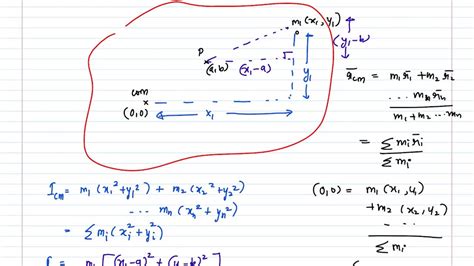 m₁ (x₁, y₁)
P
P
(y₁-b)
(a,b)
(x₁-a)
y₁
com
(0,0)
x₁
r̄cm = m₁r̄₁ + m₂r̄₂
... mₙr̄ₙ
m₁ + m₂ ... mₙ
= Σmᵢr̄ᵢ
Σmᵢ
Icm = m₁(x₁²+y₁²) + m₂(x₂²+y₂²)
... mₙ(xₙ²+yₙ²)
= Σmᵢ(xᵢ²+yᵢ²)
(0,0) = m₁(x₁,y₁)
+m₂(x₂,y₂)
Σmᵢ
= m₁[(x₁-a)²+(y₁-b)²]